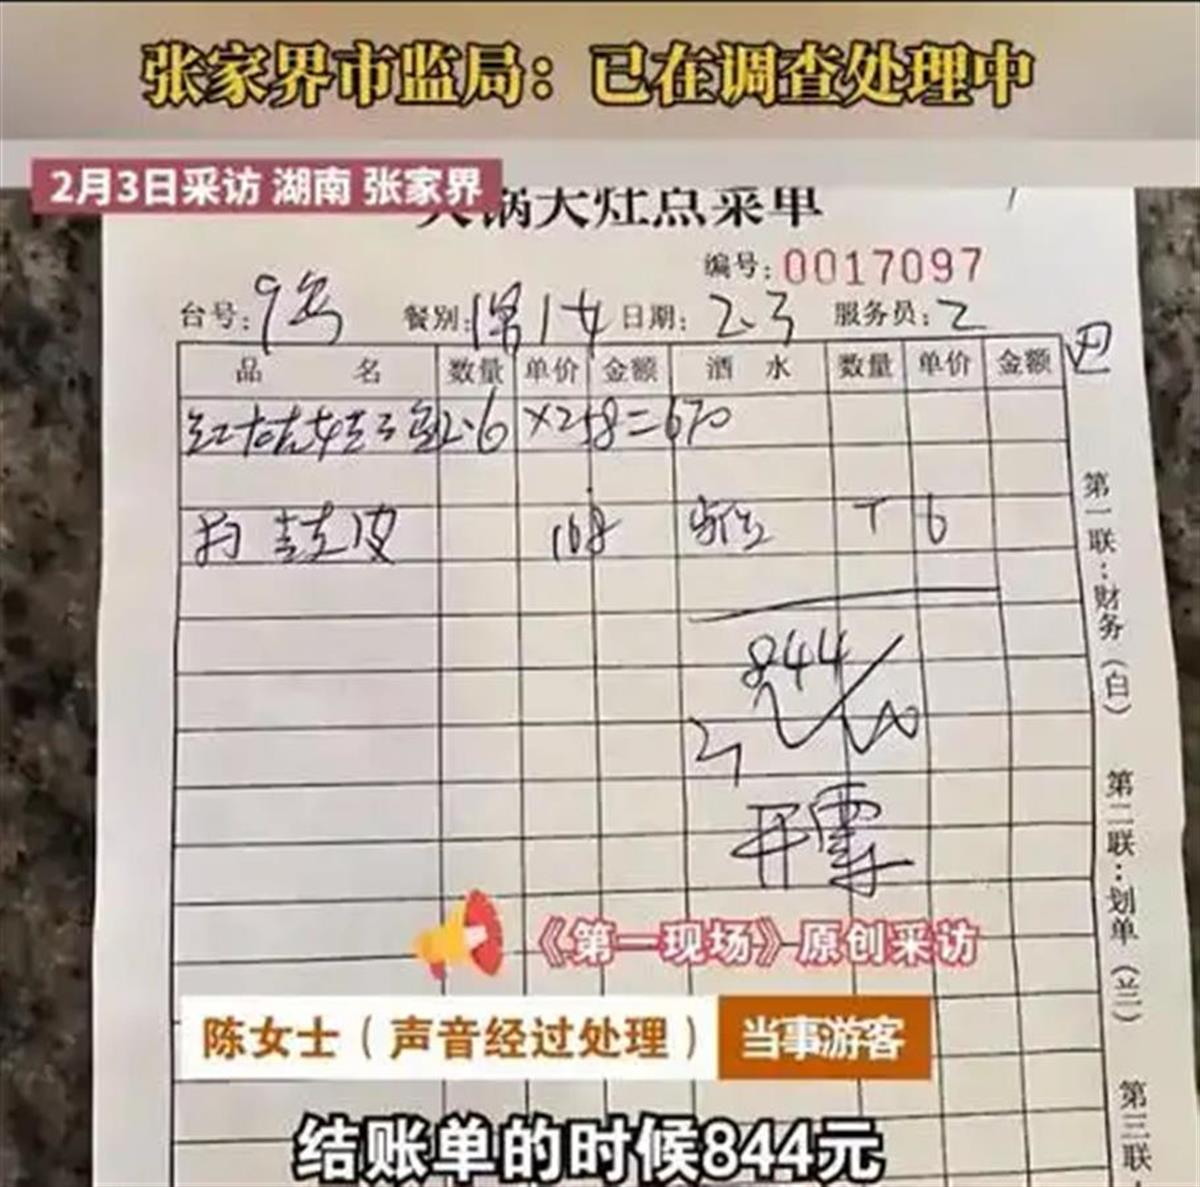 张家界市监局：已在调查处理中
2月3日采访 湖南 张家界
火锅大灶点菜单
编号：0017097
台号：9号 餐别： 日期：2.3 服务员：
品 名 数量 单价 金额 酒 水 数量 单价 金额
2.6 ×258=670
皮 168 6
844
第一联：财务（白）
第二联：划单（兰）
第三联
《第一现场》原创采访
陈女士（声音经过处理） 当事游客
结账单的时候844元